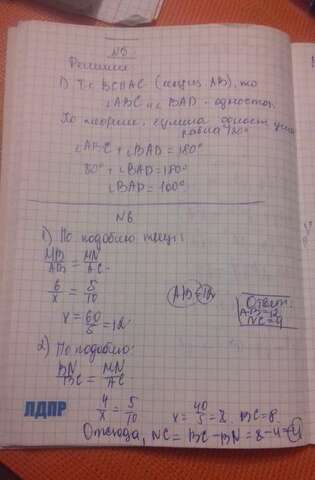 N5
Решение
1) Т.к BC||AC (секущ AB), то
∠ABC и ∠BAD - одностор.
По теореме, сумма одност углов
равна 180°
∠ABC + ∠BAD = 180°
80° + ∠BAD = 180°
∠BAD = 100°
N6
1) По подобию треуг:
MB/AB = MN/AC
6/x = 5/10
x = 60/5 = 12
AB=12
Ответ:
AB=12
NC=4
2) По подобию:
BN/BC = MN/AC
4/x = 5/10
x = 40/5 = 8, BC=8
Отсюда, NC = BC - BN = 8 - 4 = 4
ЛДПР